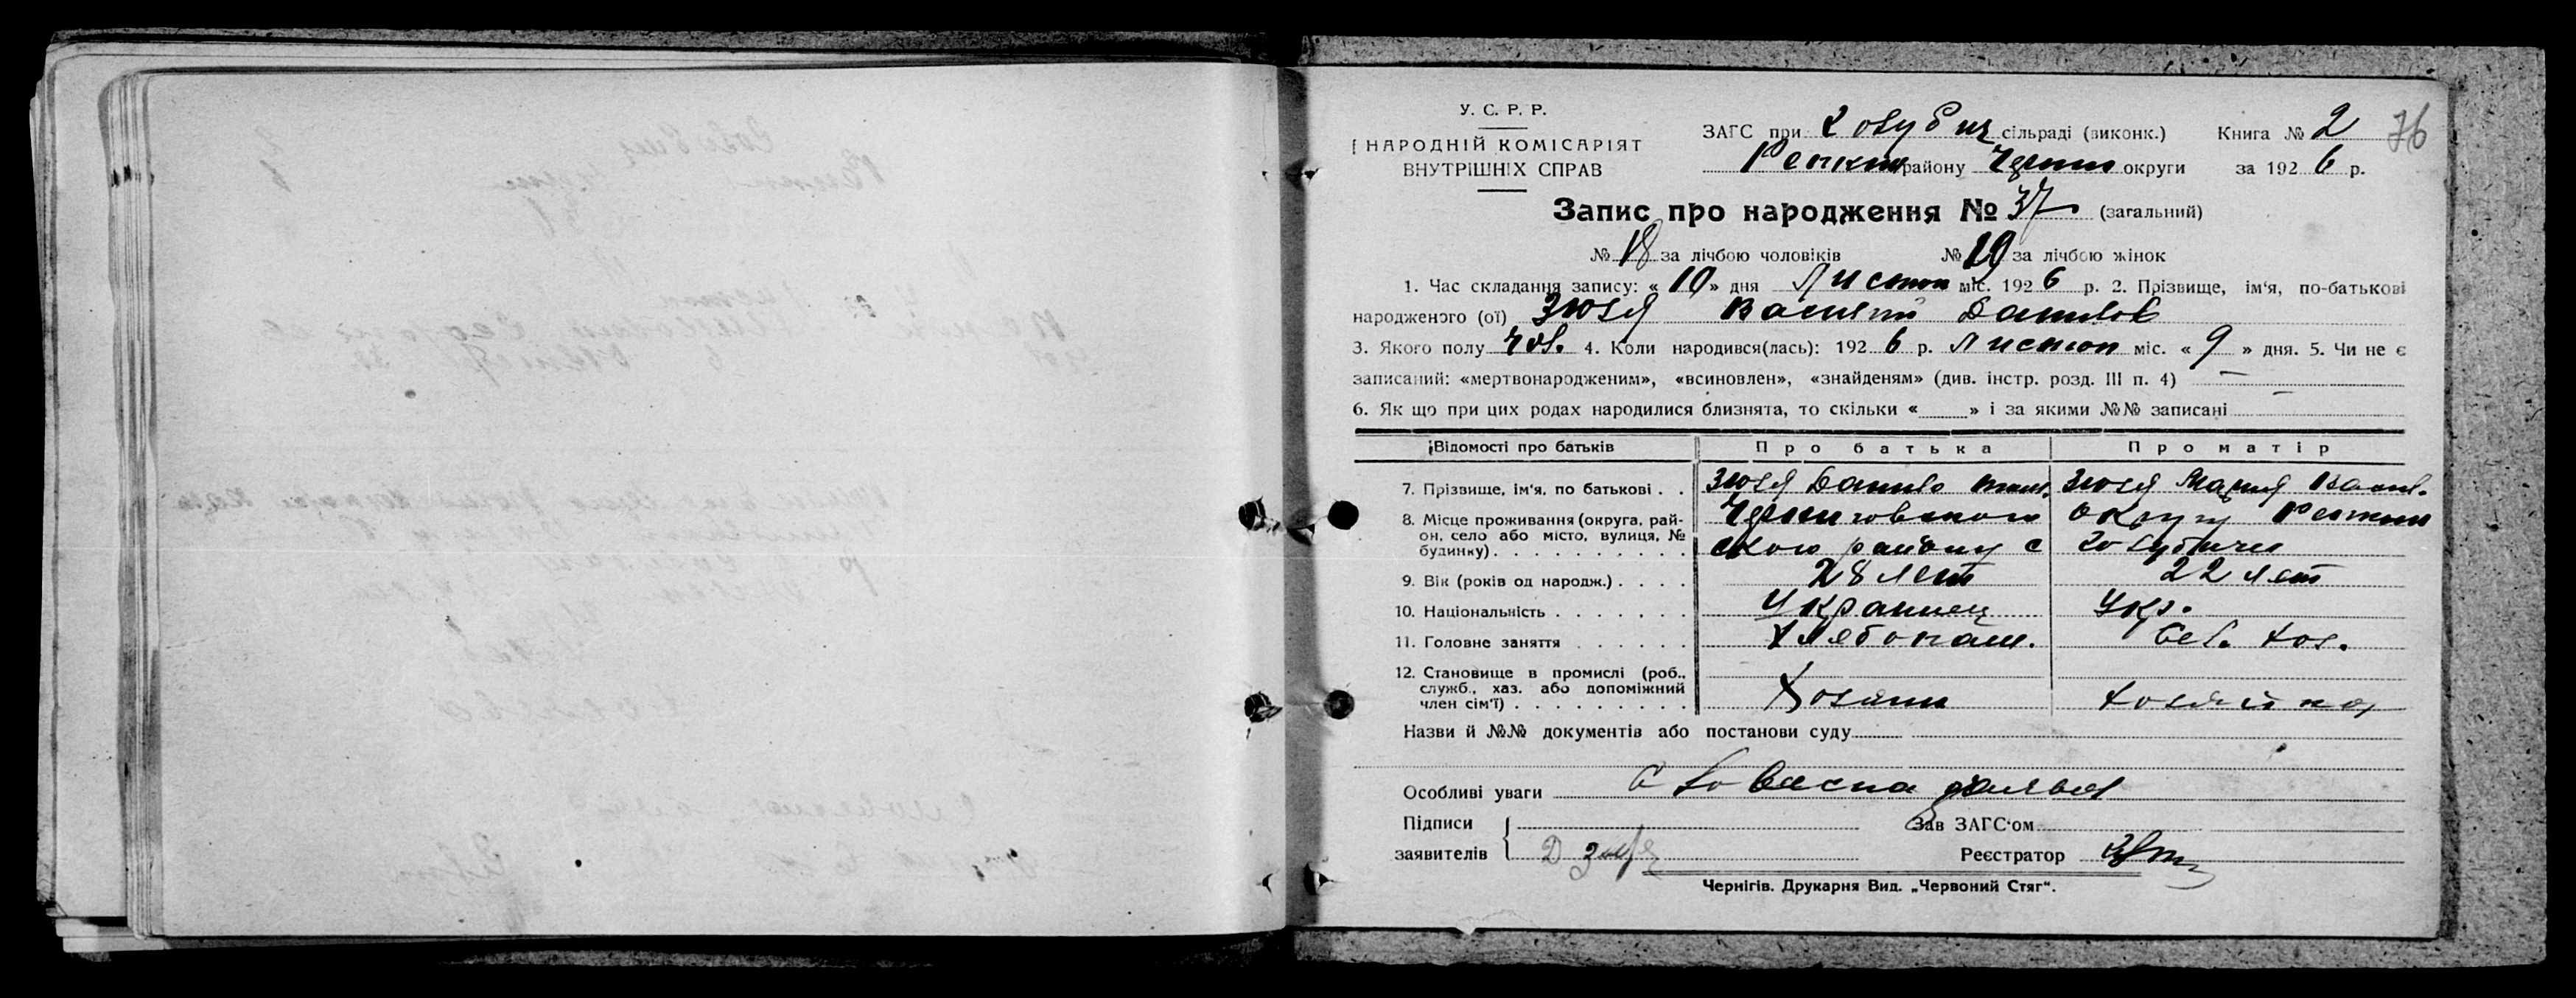 У. С. Р. Р.
НАРОДНІЙ КОМІСАРІЯТ
ВНУТРІШНІХ СПРАВ
ЗАГС при Голубич сільраді (виконк.) Книга № 2 76
Репкин району Черниг округи за 1926 р.
Запис про народження № 37 (загальний)
№ 18 за лічбою чоловіків № 19 за лічбою жінок
1. Час складання запису: « 10 » дня Листоп міс. 1926 р. 2. Прізвище, ім'я, по-батькові
народженого (ої) Зюзя Василий Данилов
3. Якого полу чол. 4. Коли народився(лась): 1926 р. Листоп міс. « 9 » дня. 5. Чи не є
записаний: «мертвонародженим», «всиновлен», «знайденям» (див. інстр. розд. III п. 4) —
6. Як що при цих родах народилися близнята, то скільки « » і за якими №№ записані —
Відомості про батьків Про батька Про матір
7. Прізвище, ім'я, по батькові . . Зюзя Данило Зюзя Мария Васил.
8. Місце проживання (округа, рай- Черниговского округу Репкин
он, село або місто, вулиця, № ского району с Голубичи
будинку) . . . . . . . . . .
9. Вік (років од народж.) . . . . 28 лет 22 лет
10. Національність . . . . . . . Украинец Укр.
11. Головне заняття . . . . . . Хлебопаш. Сел. хоз.
12. Становище в промислі (роб.,
служб., хаз. або допоміжний Хозяин хозяйка
член сім'ї) . . . . . . . . .
Назви й №№ документів або постанови суду
Особливі уваги Словесна заява
Підписи Зав ЗАГС'ом
заявителів Д Зюзя Реєстратор
Чернігів. Друкарня Вид. „Червоний Стяг".